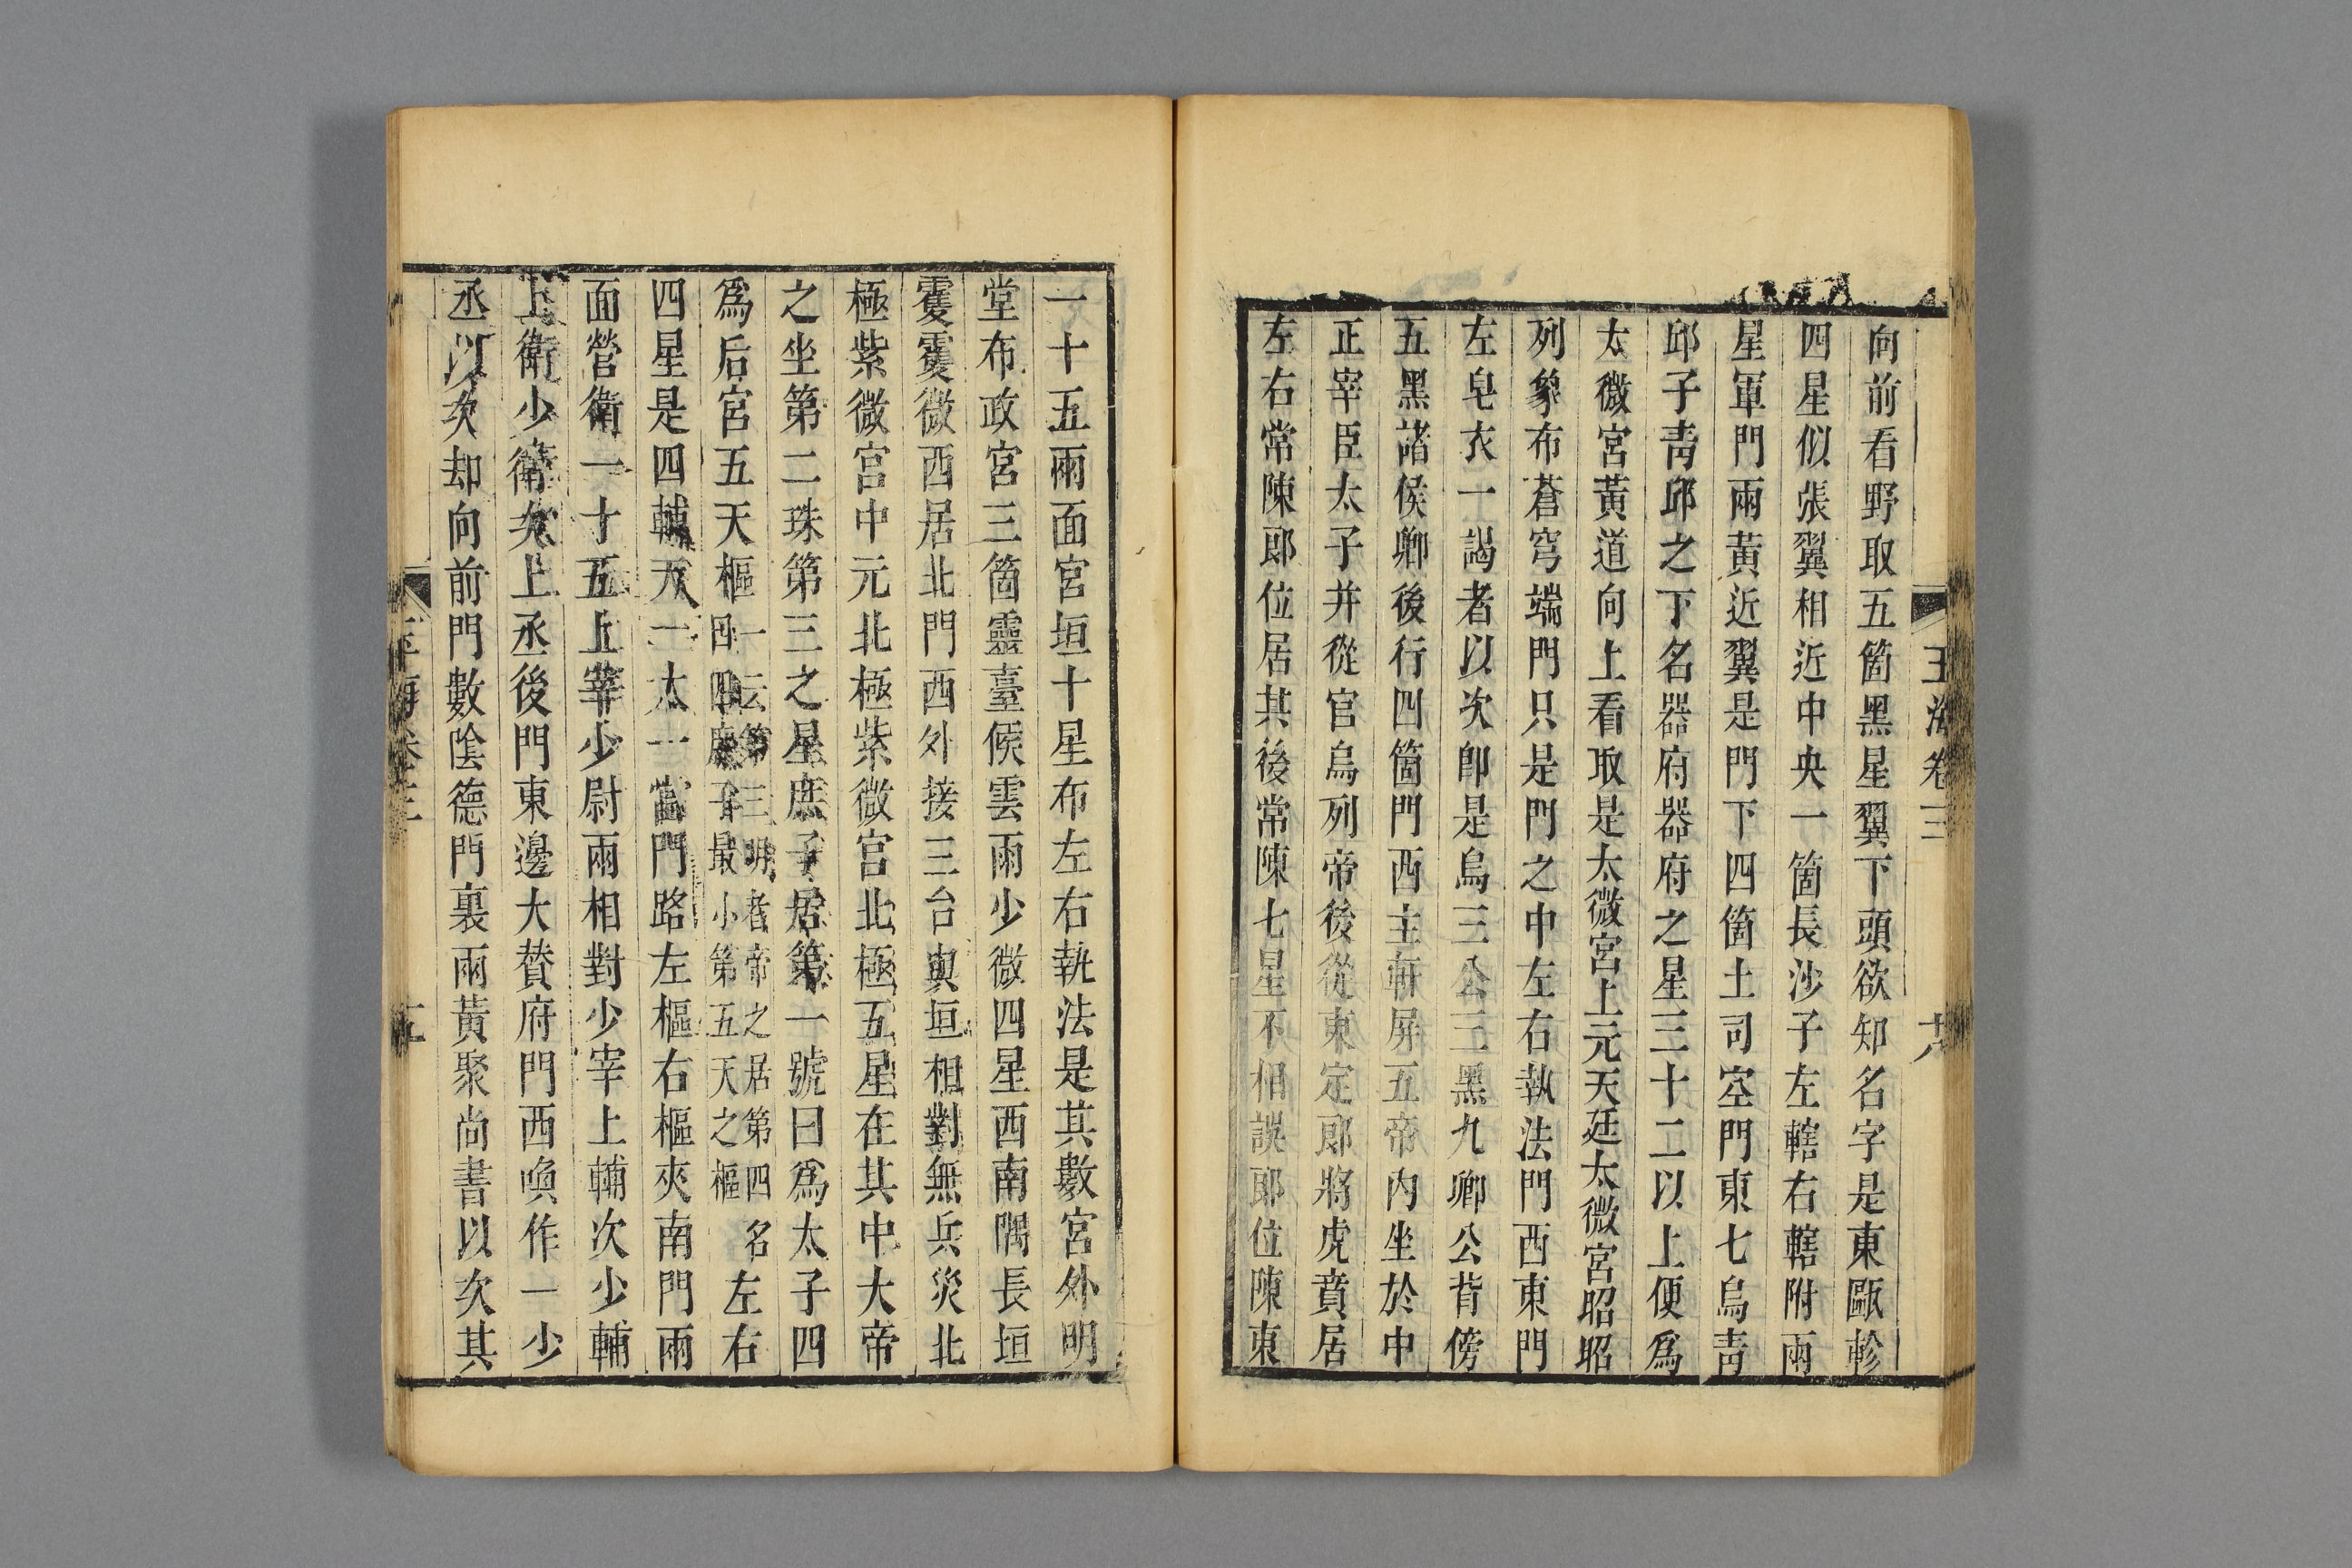 玉海卷三 十八
向前看野取五箇黑星翼下頭欲知名字是東甌軫
四星似張翼相近中央一箇長沙子左轄右轄附兩
星軍門兩黃近翼是門下四箇土司空門東七烏靑
邱子靑邱之下名器府器府之星三十二以上便爲
太微宮黃道向上看取是太微宮上元天廷太微宮昭昭
列象布蒼穹端門只是門之中左右執法門西東門
左皂衣一謁者以次卽是烏三公三黑九卿公背傍
五黑諸侯卿後行四箇門西主軒屏五帝內坐於中
正宰臣太子并從官烏列帝後從東定郎將虎賁居
左右常陳郎位居其後常陳七星不相誤郎位陳東
一十五兩面宮垣十星布左右執法是其數宮外明
堂布政宮三箇靈臺候雲雨少微四星西南隅長垣
䨥䨥微西居北門西外接三台與垣相對無兵災北
極紫微宮中元北極紫微宮北極五星在其中大帝
之坐第二珠第三之星庶子居第一號曰爲太子四
爲后宮五天樞一云第三明者帝之居第四名四庶子最小第五天之樞左右
四星是四輔天一太一當門路左樞右樞夾南門兩
面營衛一十五上宰少尉兩相對少宰上輔次少輔
上衛少衛次上丞後門東邊大贊府門西喚作一少
丞以次却向前門數陰德門裏兩黃聚尚書以次其
海卷三